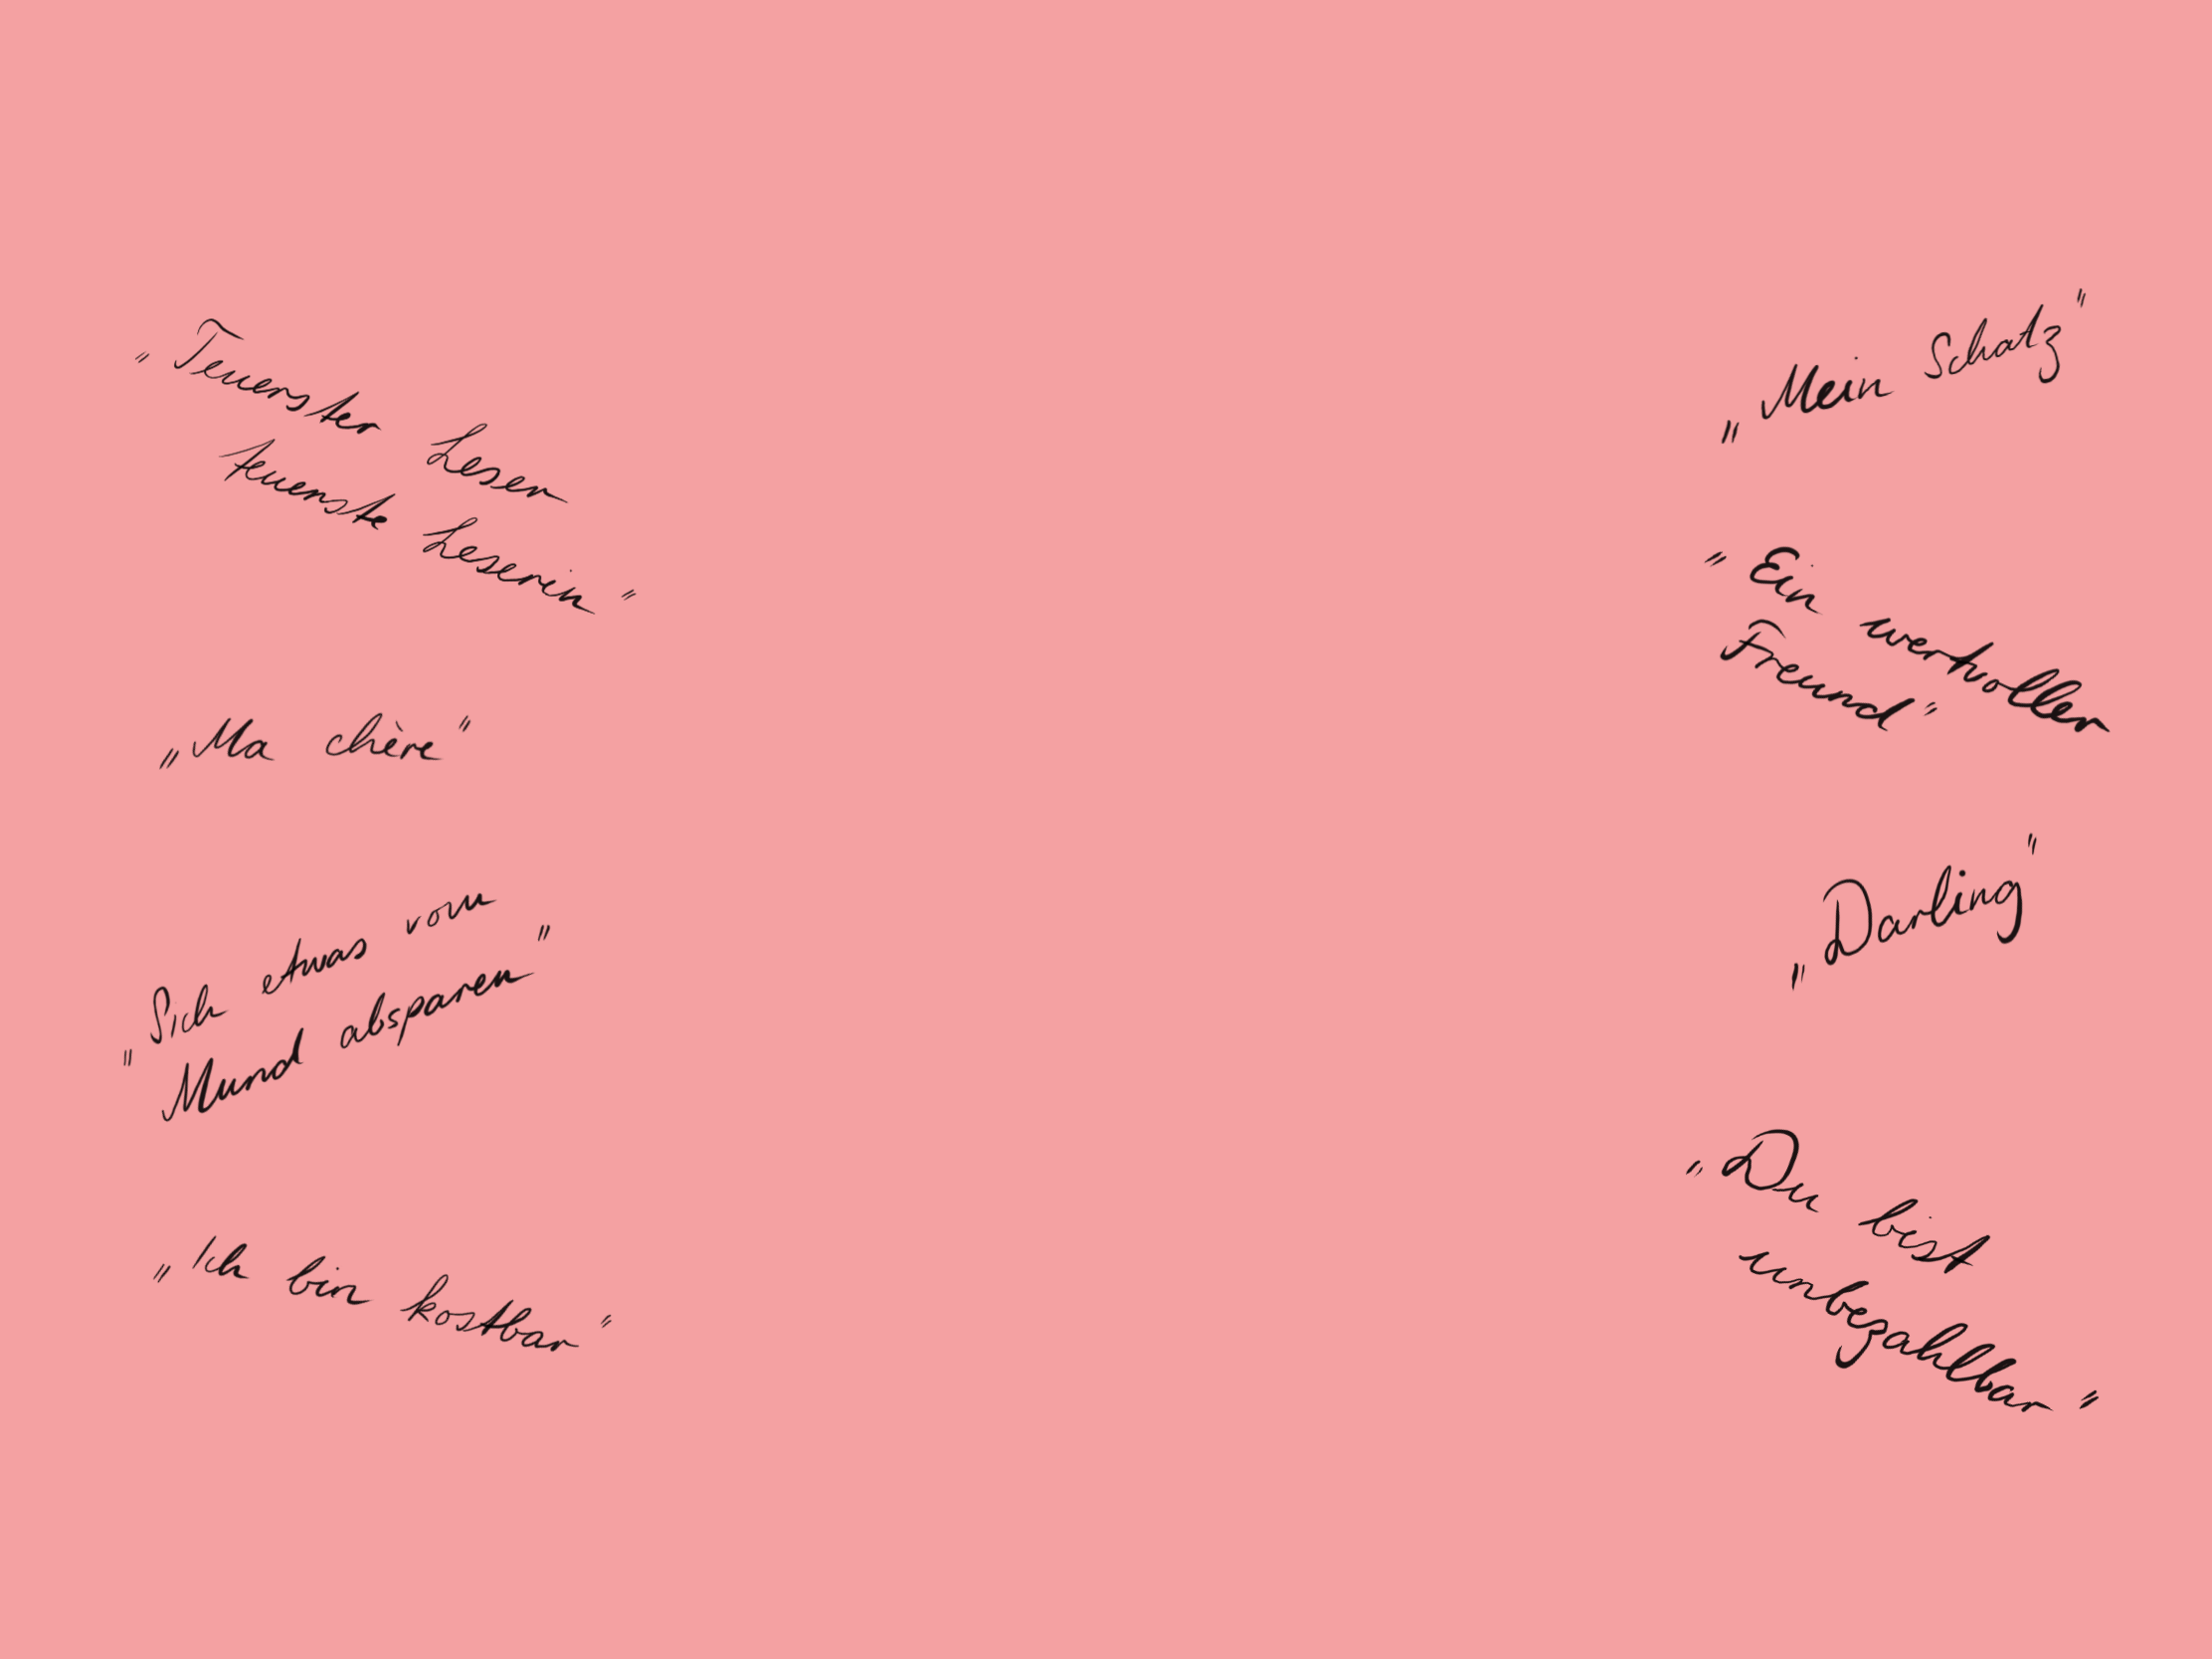 „Teuerster Leser
teuerste Leserin"
„Ma chère"
„Sich etwas vom
Mund absparen"
„Ich bin kostbar"
„Mein Schatz"
"Ein wertvoller
Freund"
„Darling"
"Du bist
unbezahlbar"